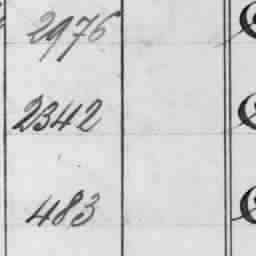 2976
2342
483